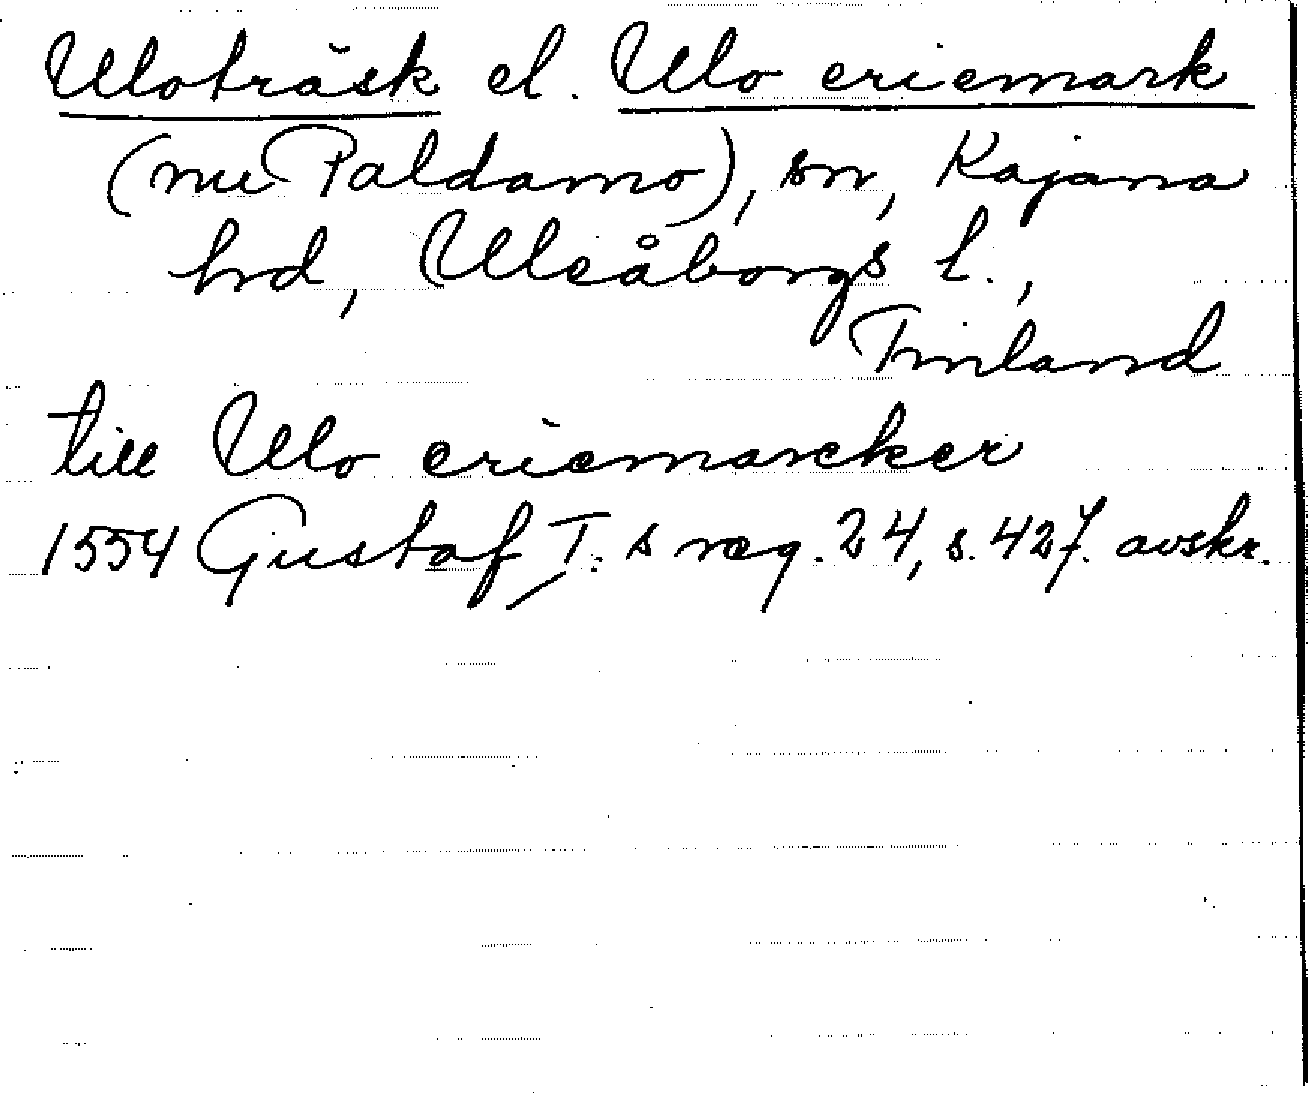 Uloträsk el. Ulo eriemark
(nu Paldamo), sn, Kajana
hrd, Uleåborgs l.,
Finland
till Ulo eriemarcker
1554 Gustaf I: s reg. 24, s. 427. avskr.